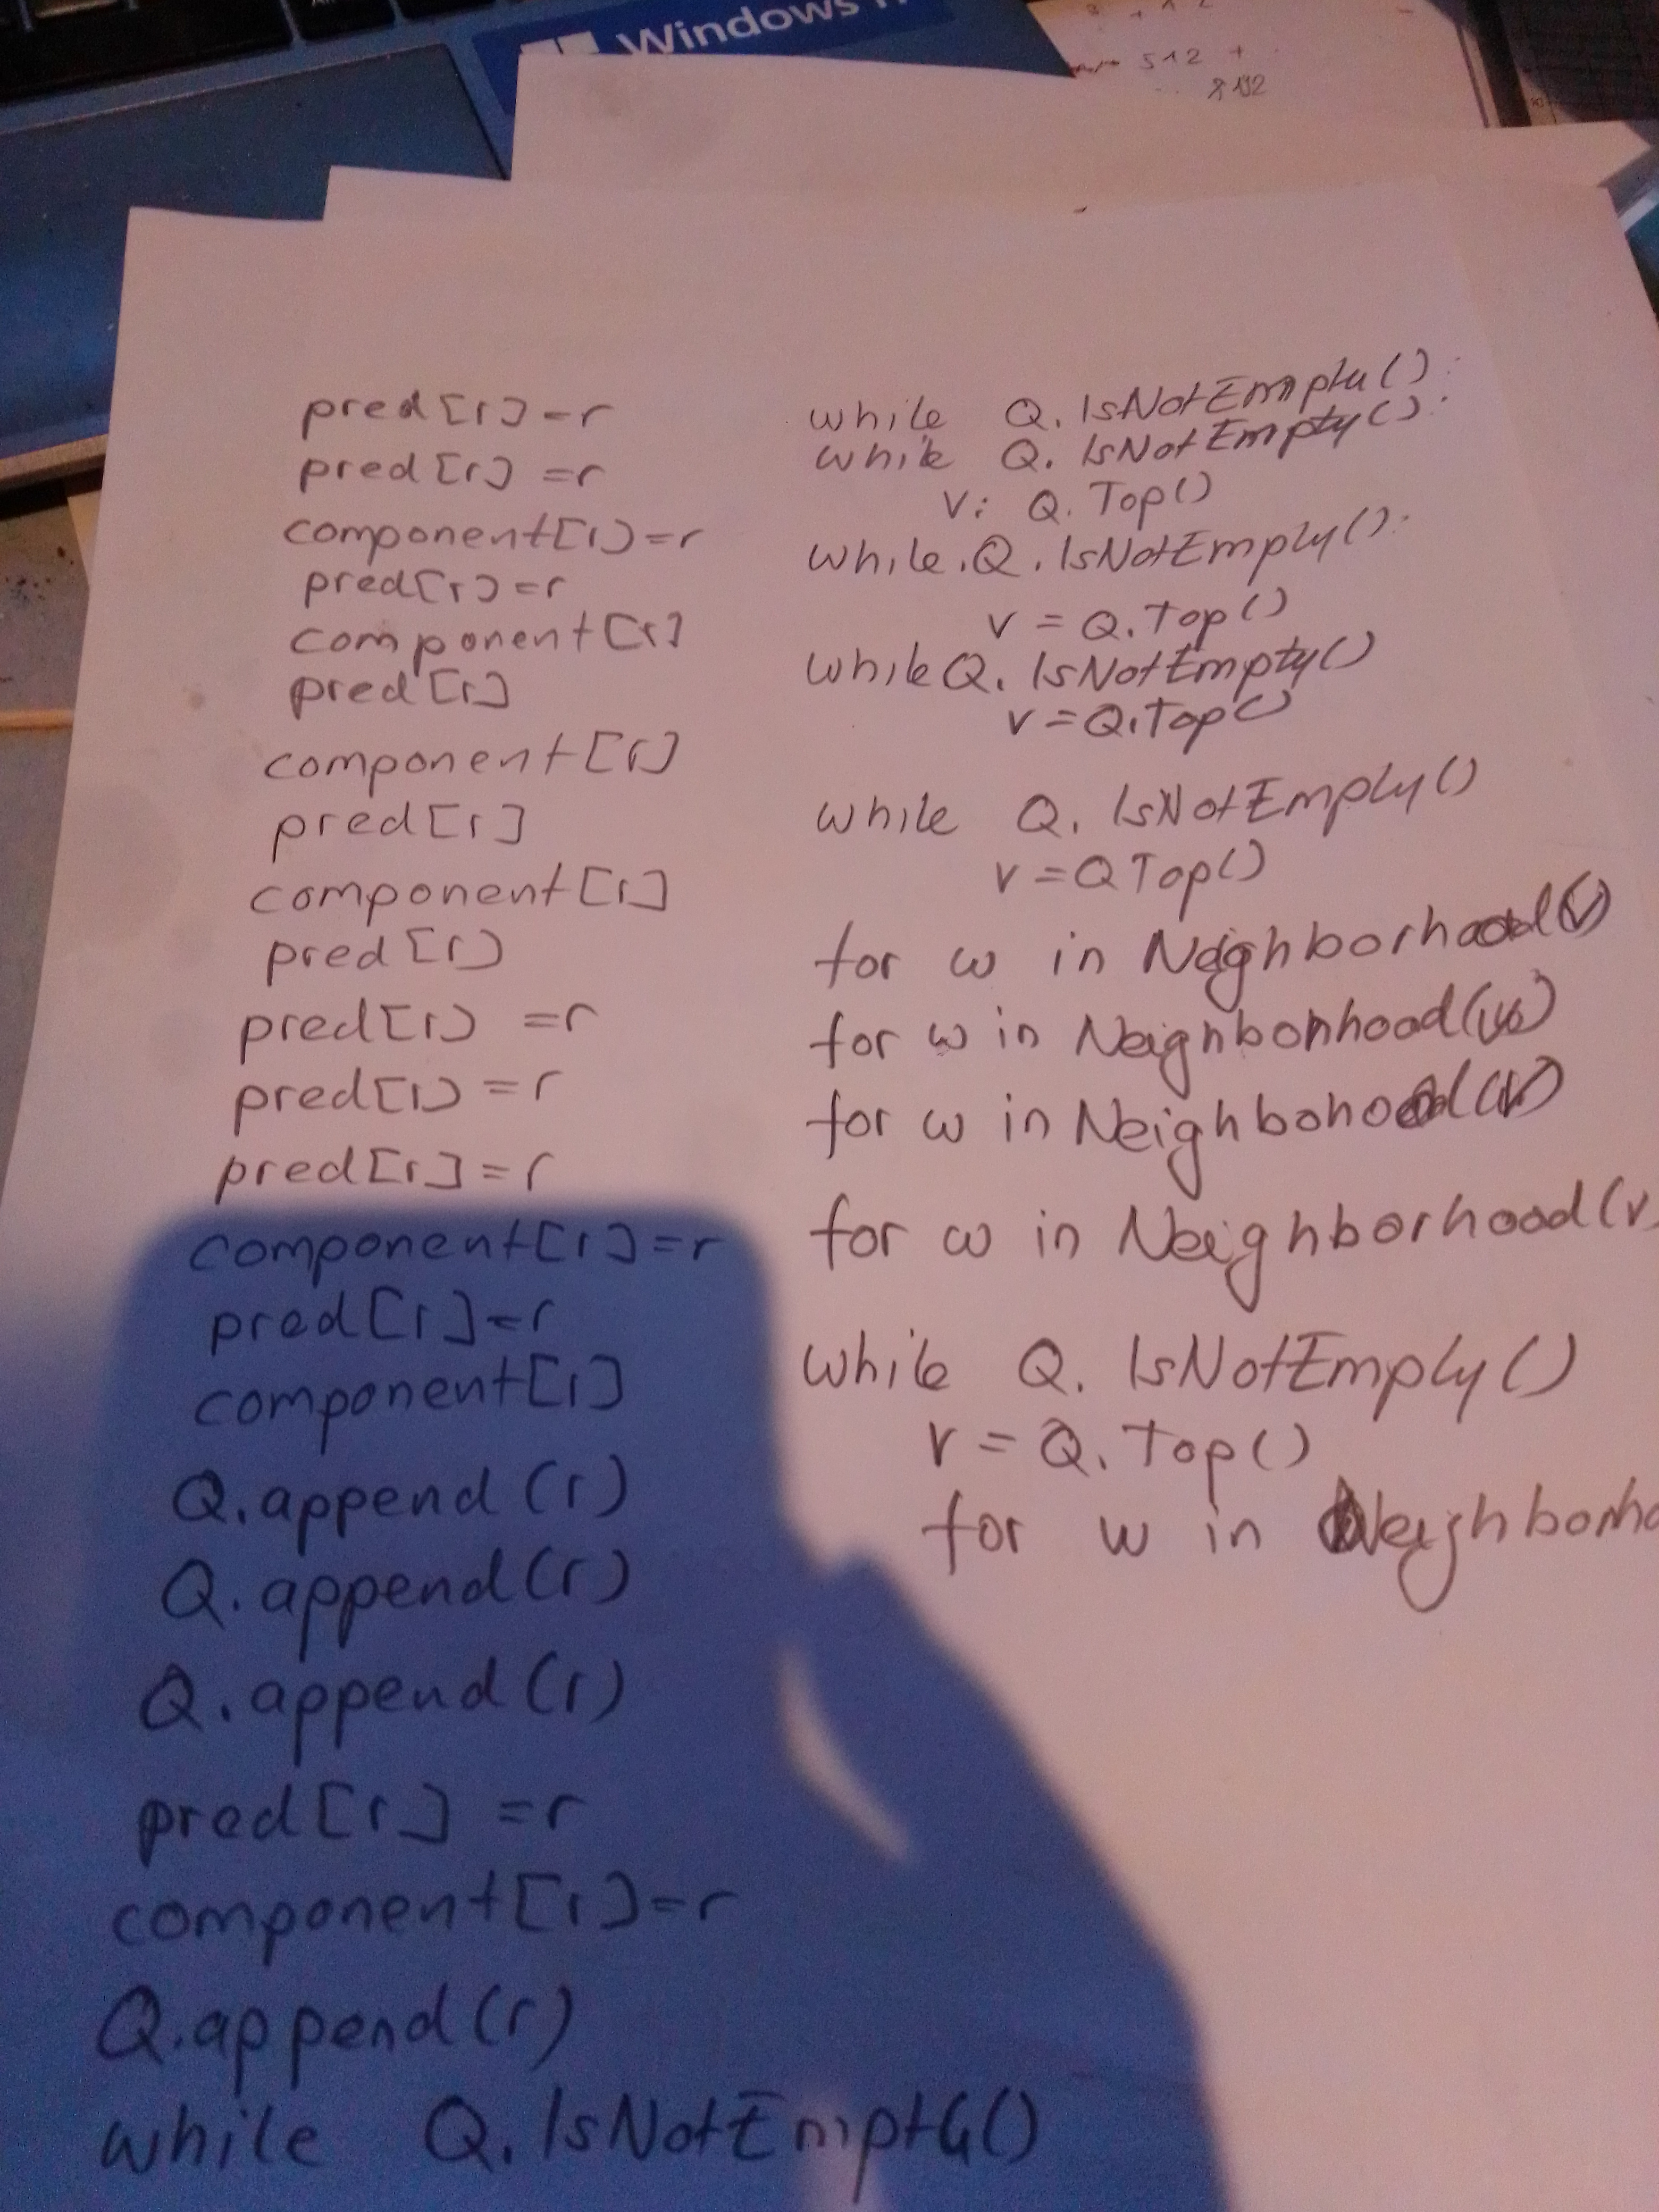 Windows
512 +
8192
pred[r]=r
pred[r] =r
component[r]=r
pred[r]=r
component[r]
pred[r]
component[r]
pred[r]
component[r]
pred[r]
pred[r] =r
pred[r] =r
pred[r]=r
component[r]=r
pred[r]=r
component[r]
Q.append(r)
Q.append(r)
Q.append(r)
pred[r] =r
component[r]=r
Q.append(r)
while Q.IsNotEmpty()
while Q.IsNotEmpty():
while Q.IsNotEmpty():
v: Q.Top()
while.Q.IsNotEmpty():
v = Q.Top()
while Q.IsNotEmpty()
v=Q.Top()
while Q.IsNotEmpty()
v=QTop()
for w in Neighborhood(v)
for w in Neighbonhood(v)
for w in Neighbohood(v)
for w in Neighborhood(v)
while Q.IsNotEmpty()
v = Q.Top()
for w in Neighborho